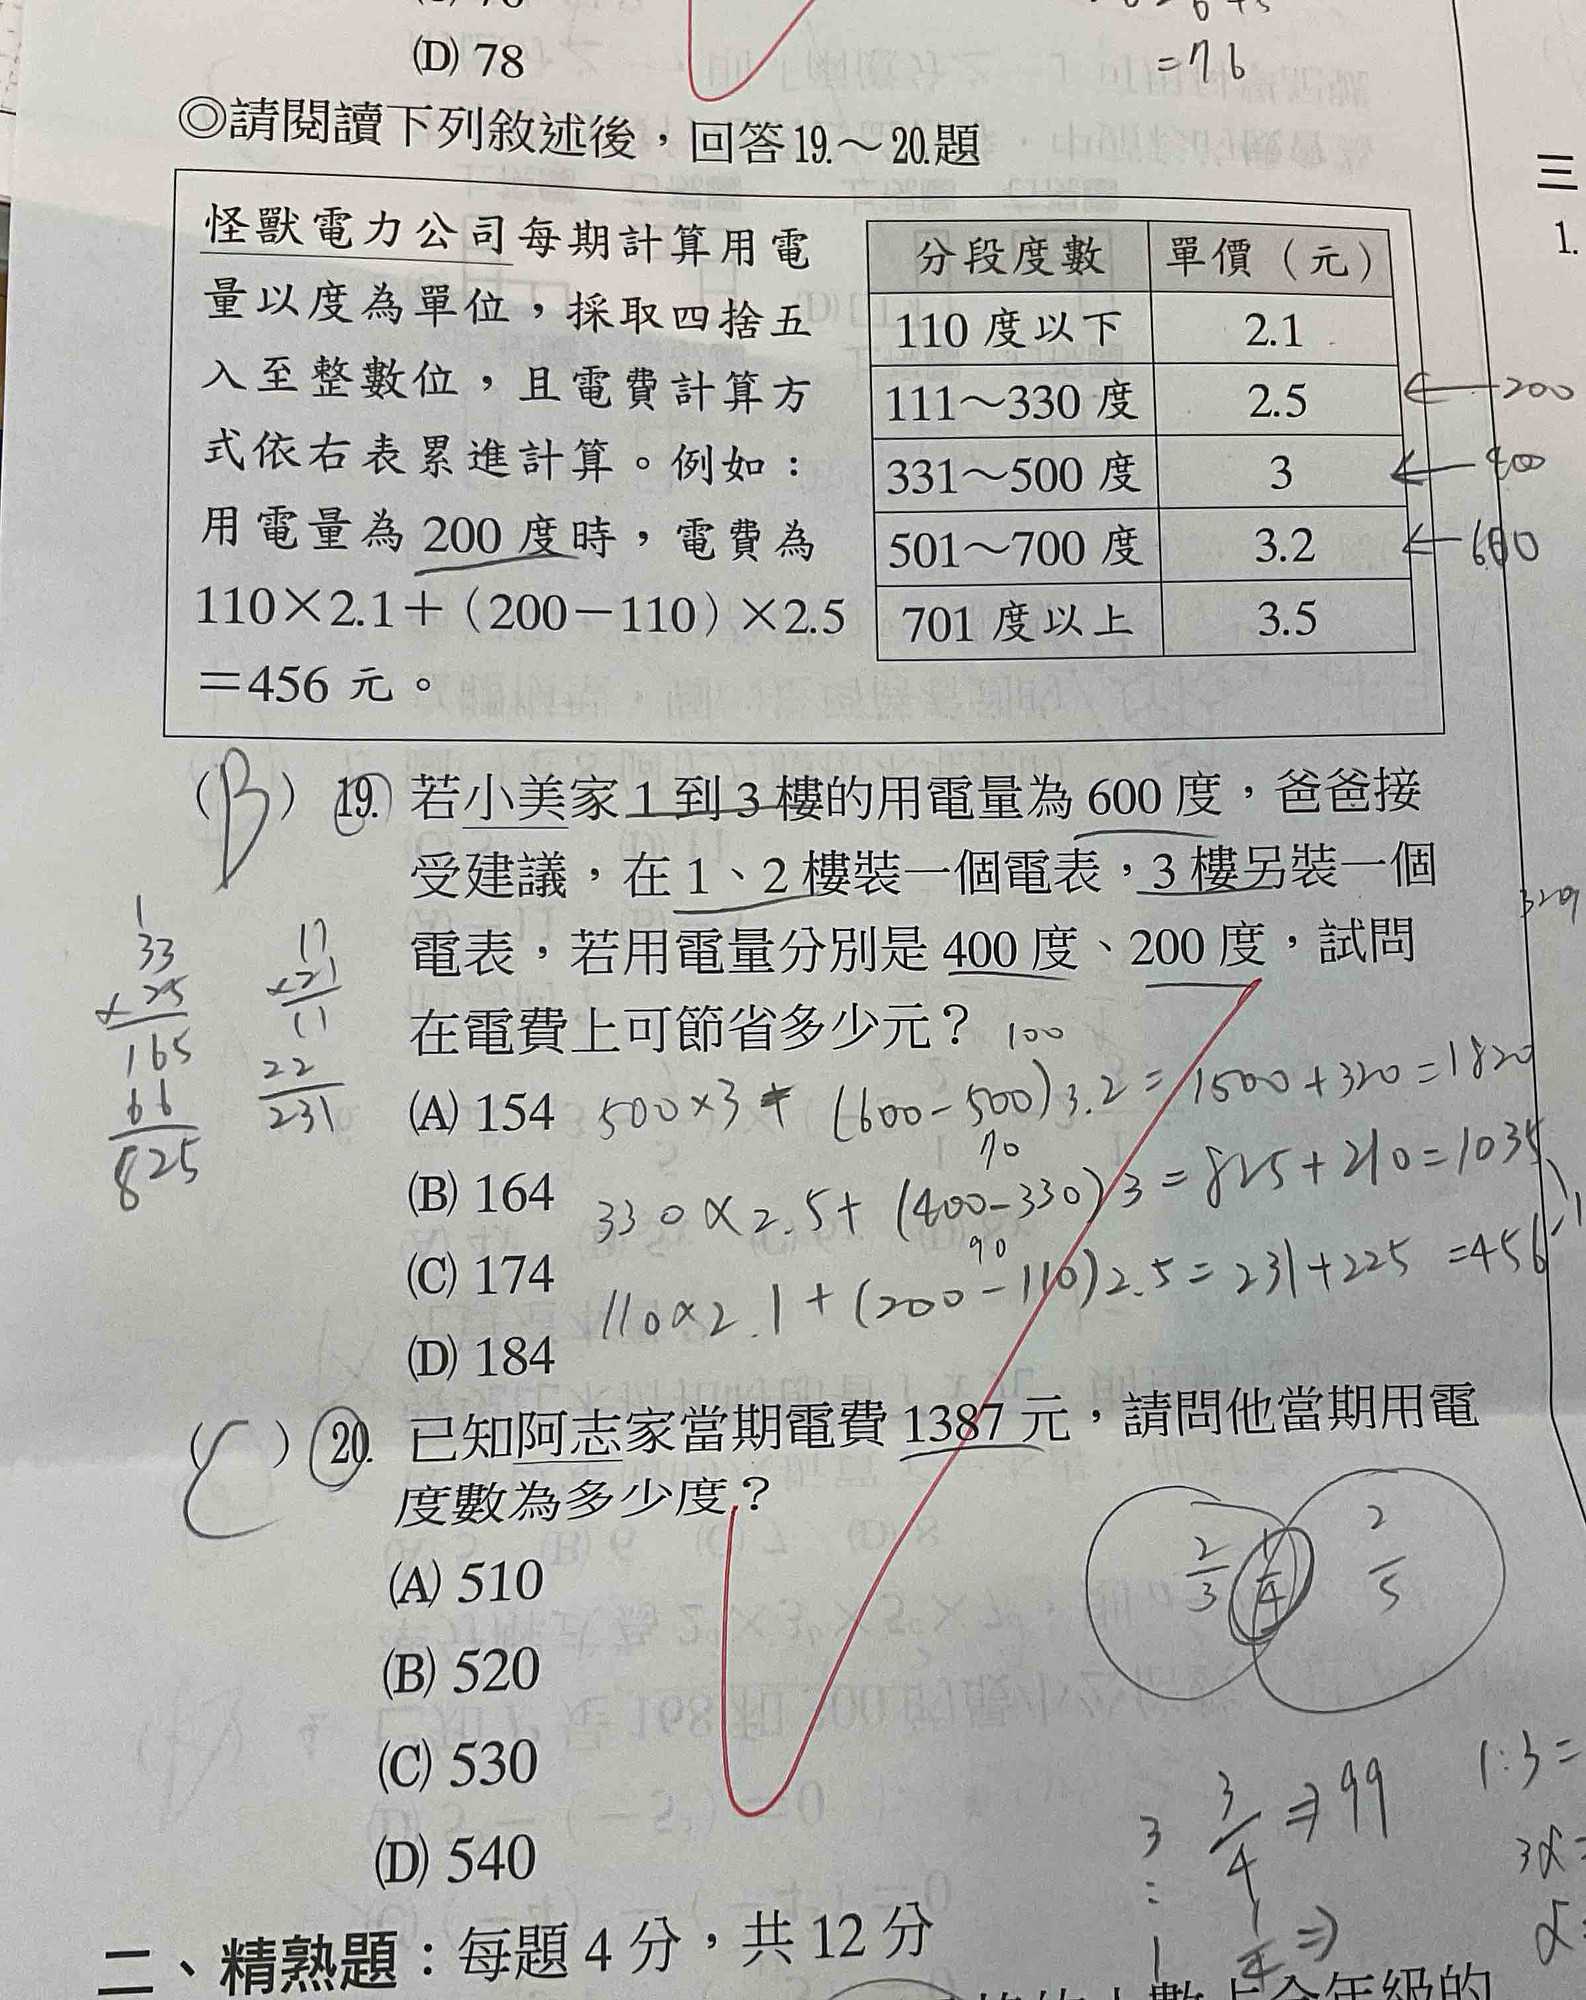 (D) 78
=76
◎請閱讀下列敘述後，回答19.～20.題
怪獸電力公司每期計算用電
量以度為單位，採取四捨五
入至整數位，且電費計算方
式依右表累進計算。例如：
用電量為 200 度時，電費為
110×2.1＋（200－110）×2.5
＝456 元。
分段度數 單價（元）
110 度以下 2.1
111～330 度 2.5
331～500 度 3
501～700 度 3.2
701 度以上 3.5
200
400
600
三
1.
(B) 19. 若小美家 1 到 3 樓的用電量為 600 度，爸爸接
受建議，在 1、2 樓裝一個電表，3 樓另裝一個
電表，若用電量分別是 400 度、200 度，試問
在電費上可節省多少元？
(A) 154
(B) 164
(C) 174
(D) 184
100
500×3+(600-500)3.2=1500+320=1820
70
330×2.5+(400-330)3=825+210=1035
90
110×2.1+(200-110)2.5=231+225=456
1
33
×25
165
66
825
17
×21
11
22
231
(C) 20. 已知阿志家當期電費 1387 元，請問他當期用電
度數為多少度？
(A) 510
(B) 520
(C) 530
(D) 540
2/3
1/4
2/5
3/4⇒99
1/4⇒
3:1
1:3=
二、精熟題：每題 4 分，共 12 分